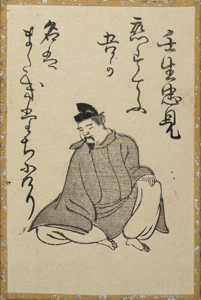 壬生忠見
恋すてふ
吾か
名は
またきたちにけり